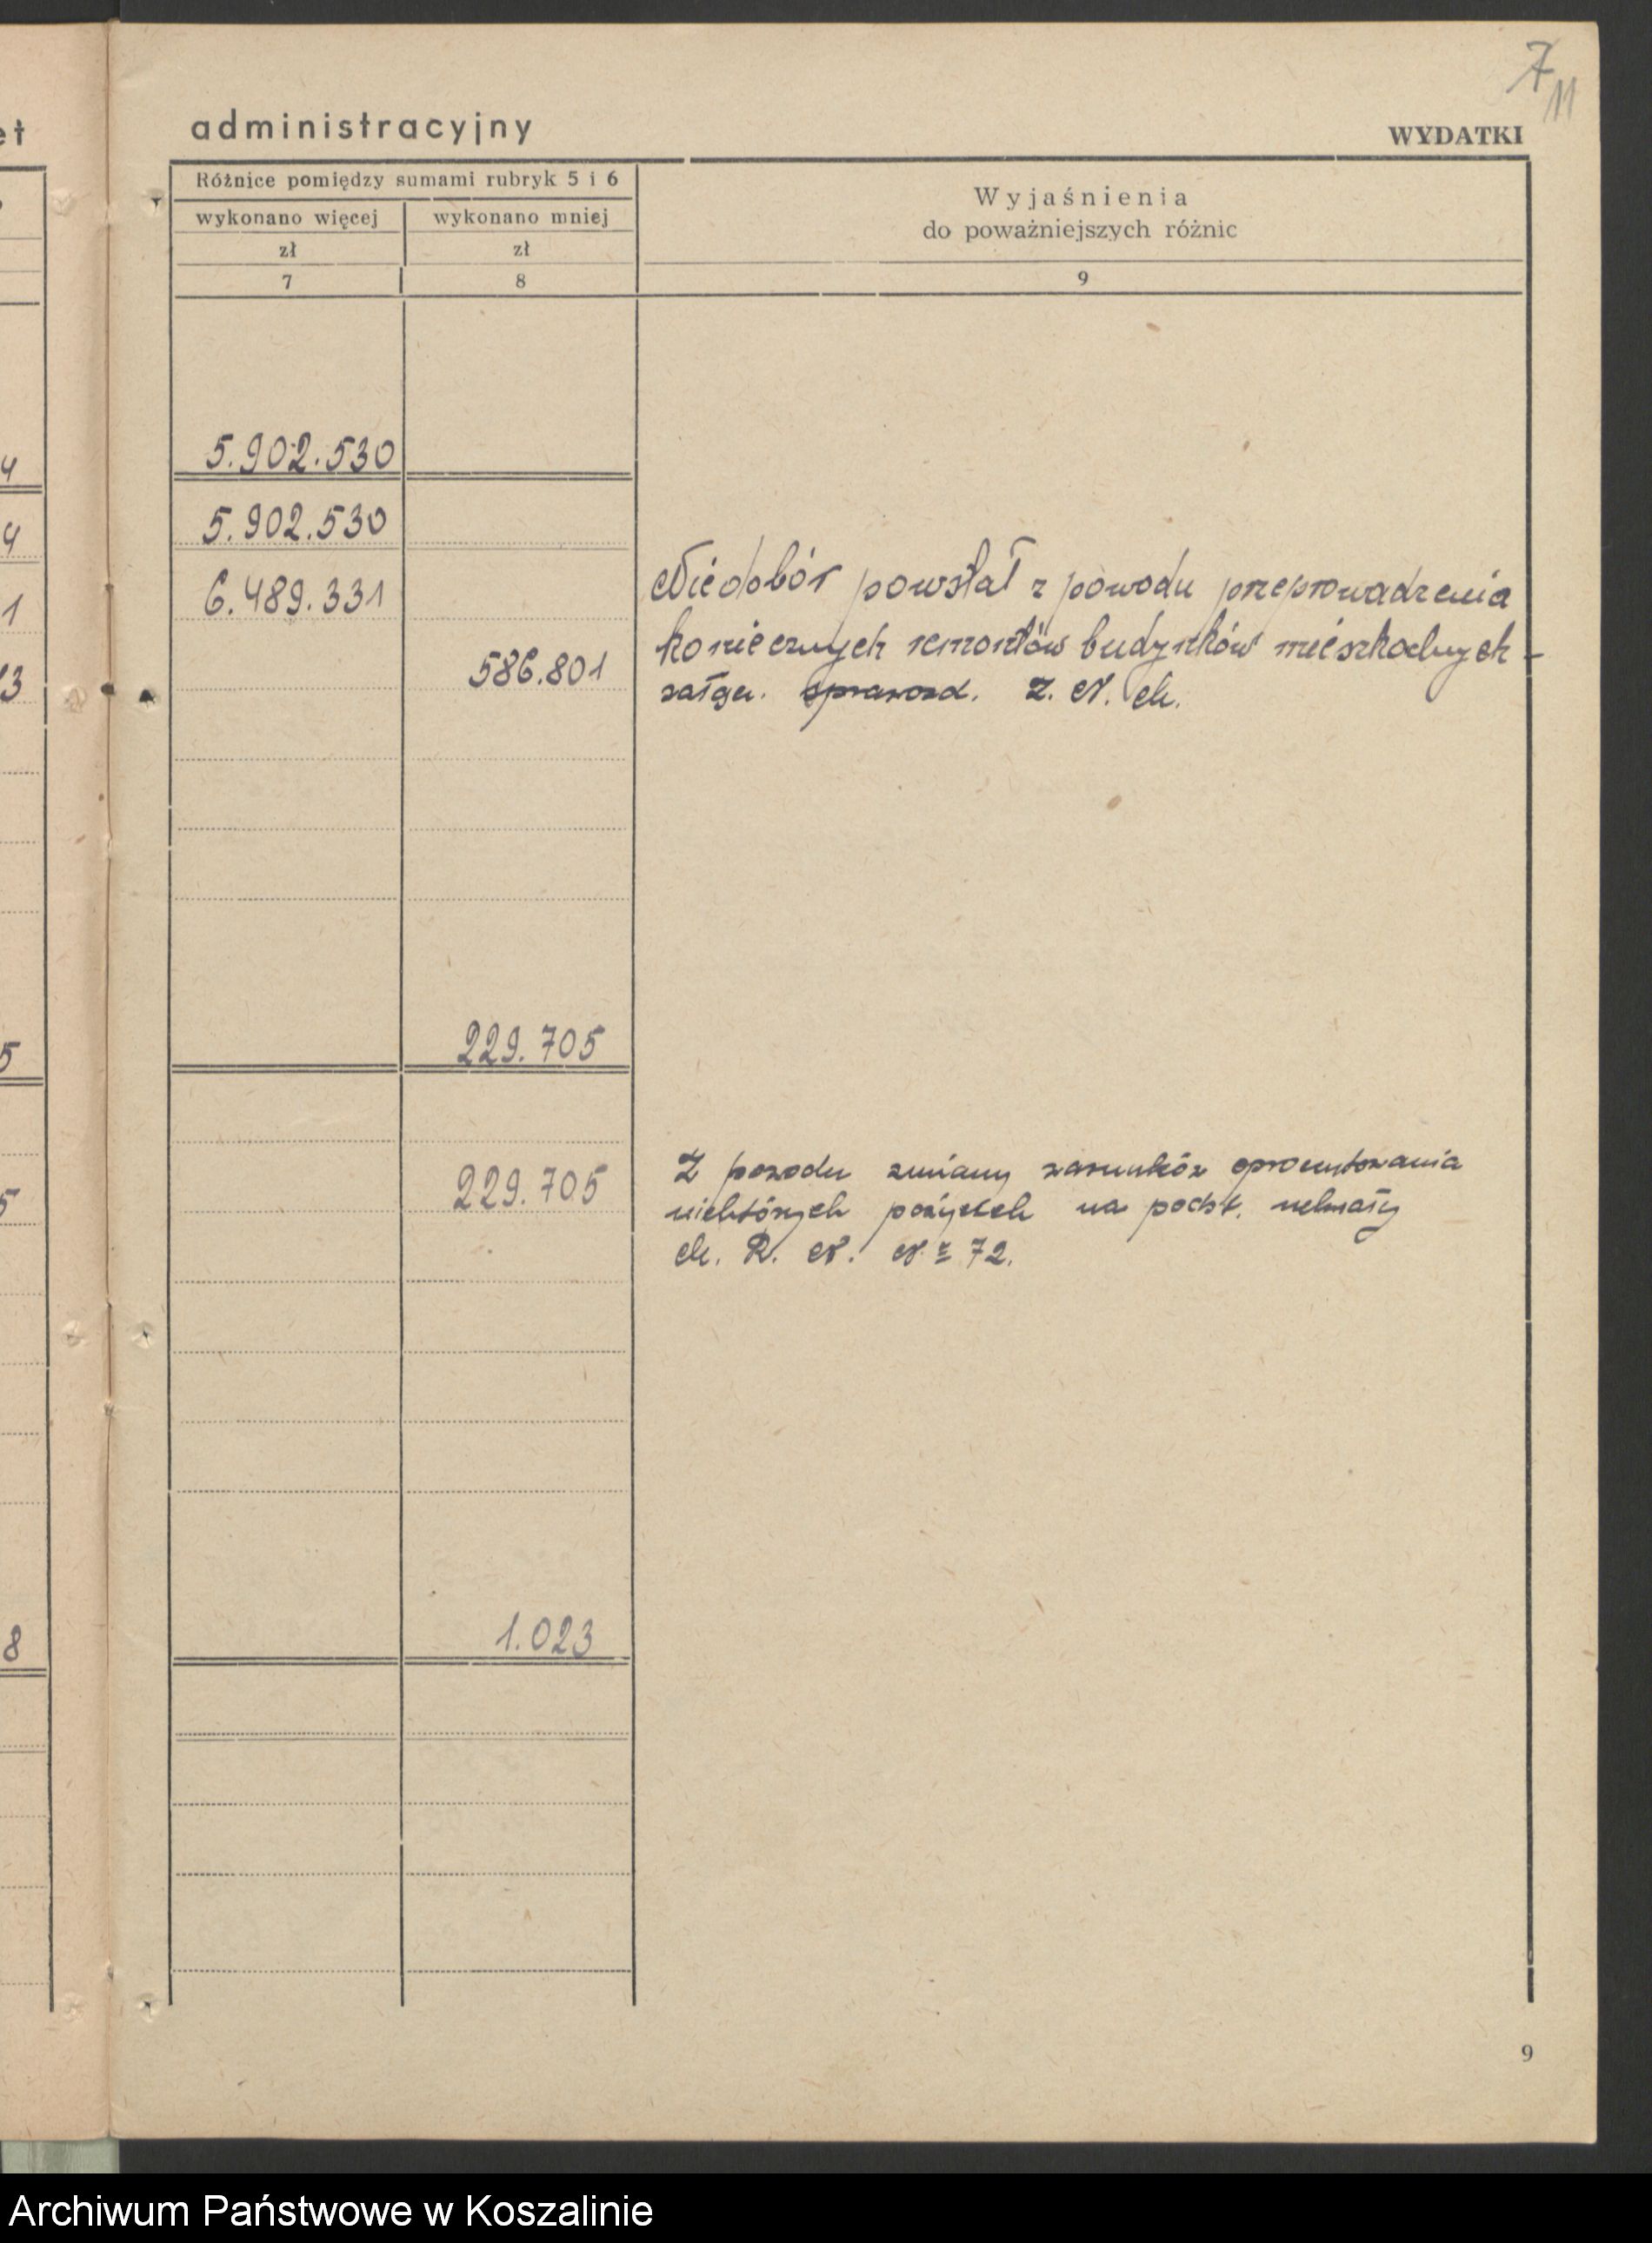 7
11
et
administracyjny
WYDATKI
Różnice pomiędzy sumami rubryk 5 i 6
wykonano więcej
wykonano mniej
Wyjaśnienia
do poważniejszych różnic
zł
zł
7
8
9
5.902.530
4
5.902.530
4
6.489.331
1
586.801
3
Niedobór powstał z powodu przeprowadzenia
koniecznych remontów budynków mieszkalnych -
załącz. sprawozd. Z. N. M.
229.705
5
229.705
5
Z powodu zmiany warunków oprocentowania
niektórych pożyczek na podst. uchwały
M. R. N. Nr 72.
1.023
8
9
Archiwum Państwowe w Koszalinie